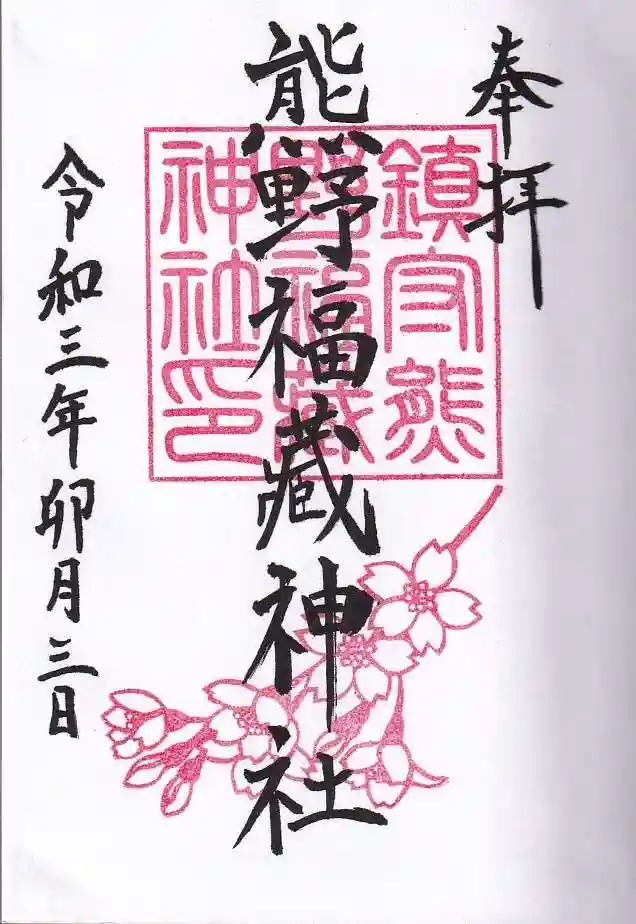 奉拝
熊野福藏神社
令和三年卯月三日
鎮守熊
野福藏
神社印